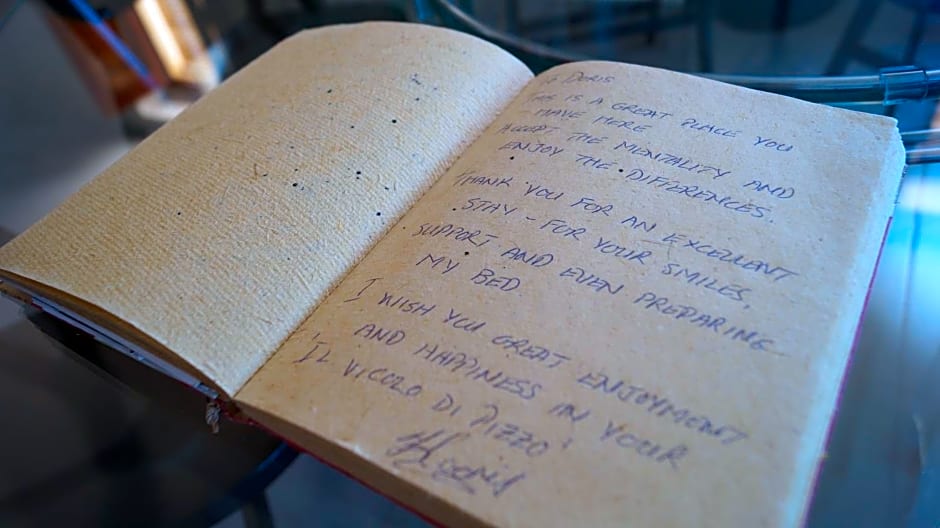 DORIS
THIS IS A GREAT PLACE YOU
HAVE HERE
ACCEPT THE MENTALITY AND
ENJOY THE DIFFERENCES.
THANK YOU FOR AN EXCELLENT
STAY - FOR YOUR SMILES,
SUPPORT AND EVEN PREPARING
MY BED.
I WISH YOU GREAT ENJOYMENT
AND HAPPINESS IN YOUR
IL VICOLO DI PIZZO!